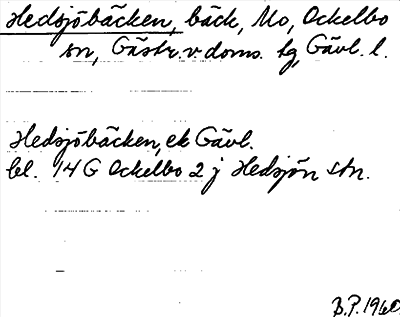 Hedsjöbäcken, bäck, Mo, Ockelbo
sn, Gästr. v doms. tg, Gävl. l.
Hedsjöbäcken, ek Gävl.
bl. 14 G Ockelbo 2 j Hedsjön stn.
B.P. 1960